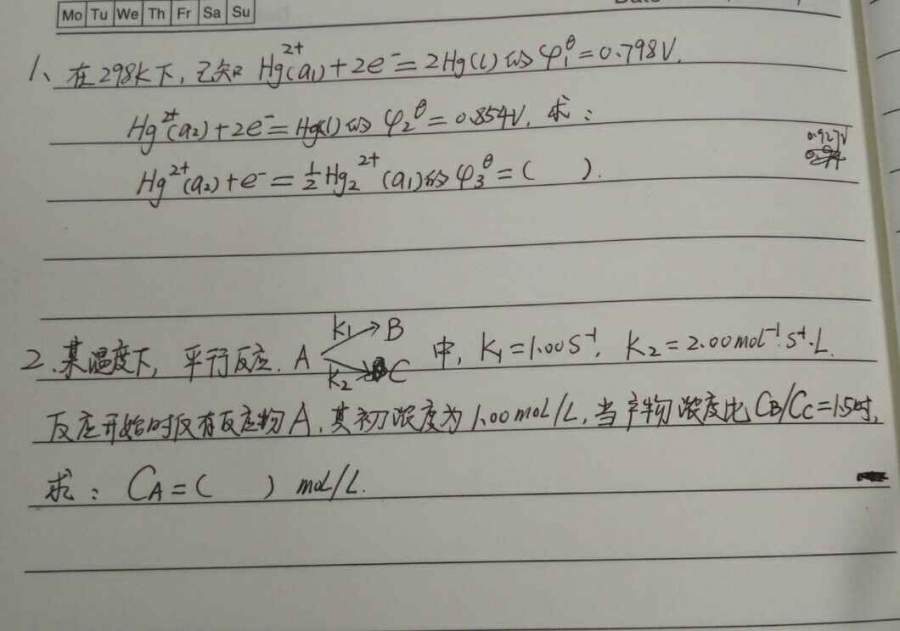 Mo Tu We Th Fr Sa Su
1、在298K下,已知 Hg²⁺(a₁)+2e⁻=2Hg(l)的φ₁^θ=0.798V.
Hg²⁺(a₂)+2e⁻=Hg(l)的φ₂^θ=0.854V, 求:
0.927V
Hg²⁺(a₂)+e⁻=½Hg₂²⁺(a₁)的φ₃^θ=( ).
2.某温度下,平行反应. A k₁ B k₂ C 中, K₁=1.00S⁻¹, K₂=2.00mol⁻¹·S⁻¹·L.
反应开始时仅有反应物A,其初浓度为1.00mol/L,当产物浓度比CB/CC=1.5时,
求:CA=( )mol/L.